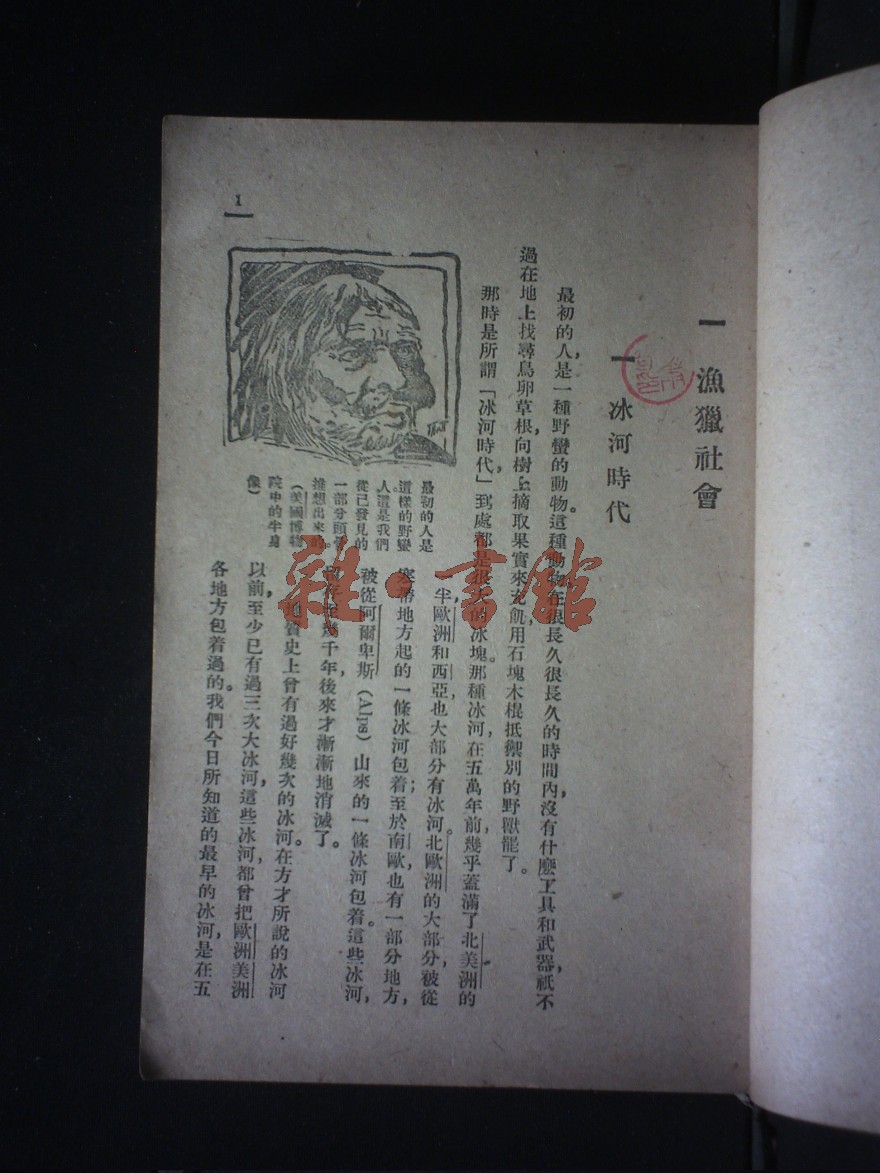 1
一 漁獵社會
一 冰河時代
最初的人，是一種野蠻的動物。這種動物，在很長久很長久的時間內，沒有什麼工具和武器，祇不
過在地上找尋鳥卵草根，向樹上摘取果實來充飢，用石塊木棍抵禦別的野獸罷了。
那時是所謂「冰河時代」，到處都是很大的冰塊。那種冰河，在五萬年前，幾乎蓋滿了北美洲的
一半，歐洲和西亞，也大部分有冰河。北歐洲的大部分，被從
寒帶地方起的一條冰河包着；至於南歐，也有一部分地方，
被從阿爾卑斯（Alps）山來的一條冰河包着。這些冰河，
幾千年，後來才漸漸地消滅了。
地質史上曾有過好幾次的冰河。在方才所說的冰河
以前，至少已有過三次大冰河，這些冰河，都曾把歐洲美洲
各地方包着過的。我們今日所知道的最早的冰河，是在五
最初的人是
這樣的野蠻
人。這是我們
從已發見的
一部分頭骨
推想出來的。
（美國博物
院中的半身
像）
雜·書館